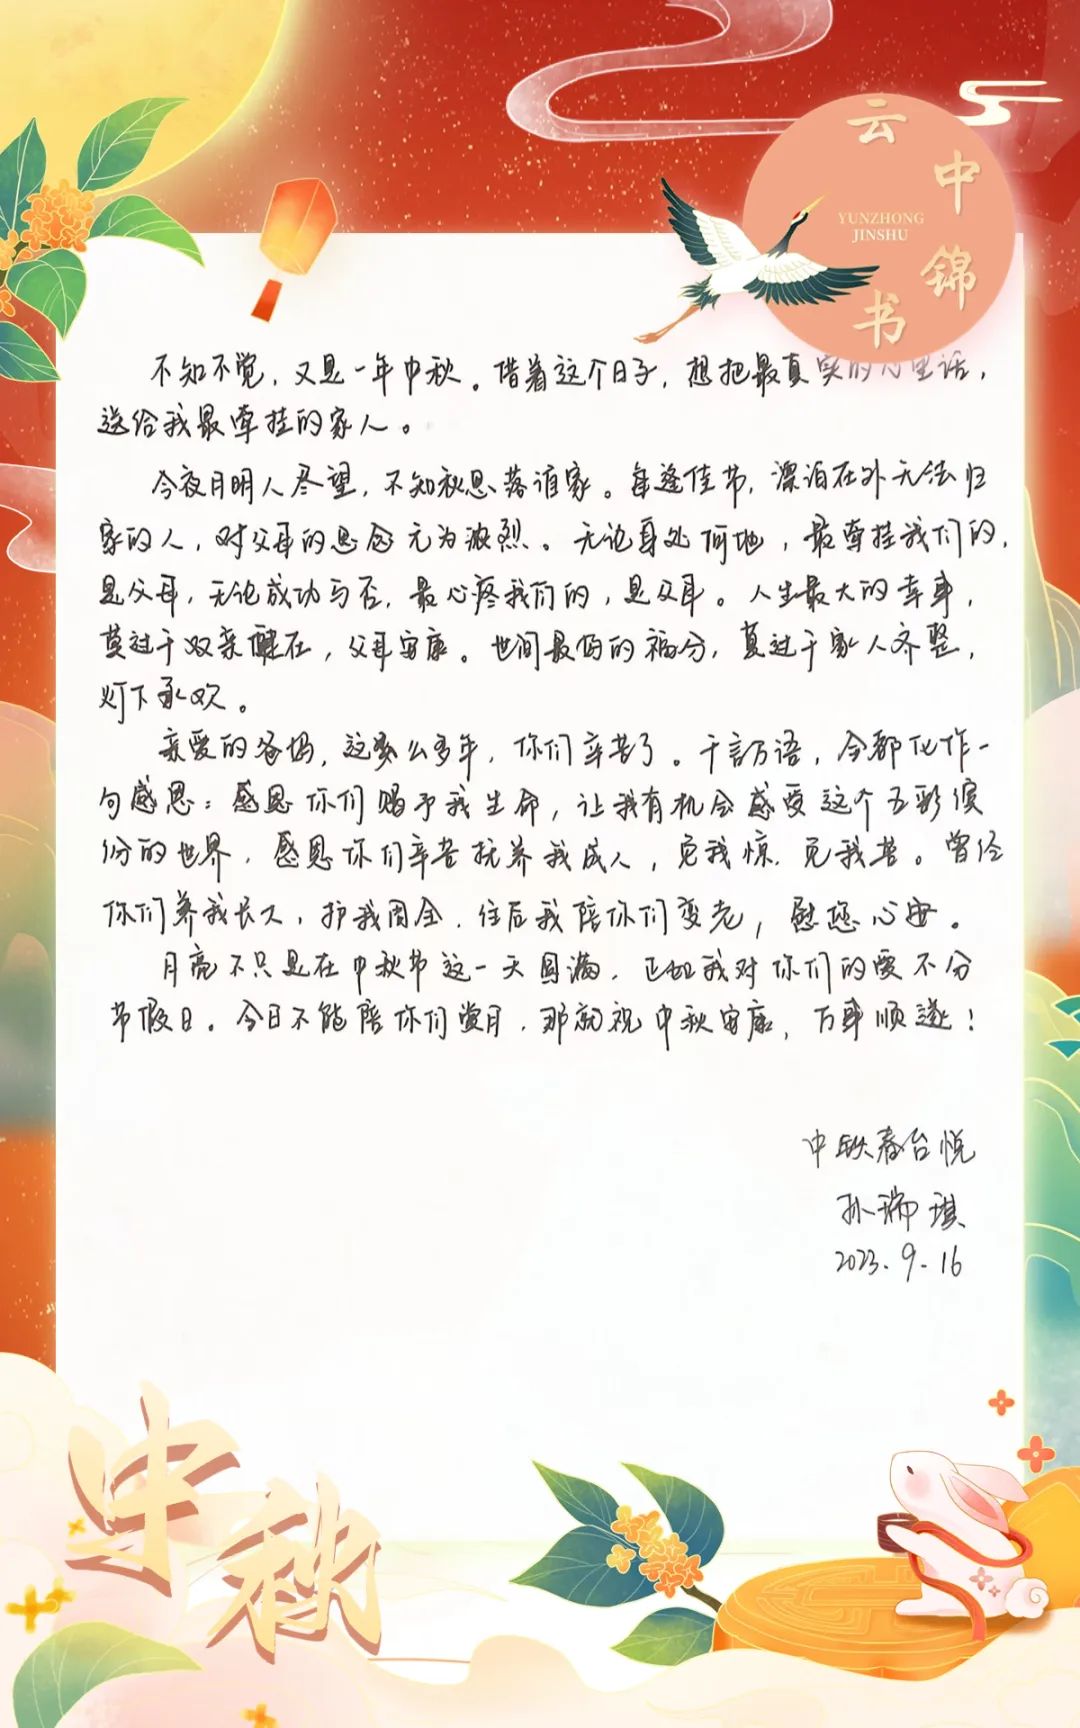 云中锦书
YUNZHONG
JINSHU
不知不觉，又是一年中秋。借着这个日子，想把最真实的心里话，
送给我最牵挂的家人。
今夜月明人尽望，不知秋思落谁家。每逢佳节，漂泊在外无法归
家的人，对父母的思念尤为浓烈。无论身处何地，最牵挂我们的，
是父母，无论成功与否，最心疼我们的，是父母。人生最大的幸事，
莫过于双亲健在，父母安康。世间最好的福分，莫过于家人齐整，
灯下承欢。
亲爱的爸妈，这么多年，你们辛苦了。千言万语，全都化作一
句感恩：感恩你们赐予我生命，让我有机会感受这个五彩缤
纷的世界，感恩你们辛苦抚养我成人，免我惊，免我苦。曾经
你们养我长大，护我周全，往后我陪你们变老，慰您心安。
月亮不只是在中秋节这一天圆满，正如我对你们的爱不分
节假日。今日不能陪你们赏月，那就祝中秋安康，万事顺遂！
中铁春台悦
孙瑞琪
2023.9.16
中秋